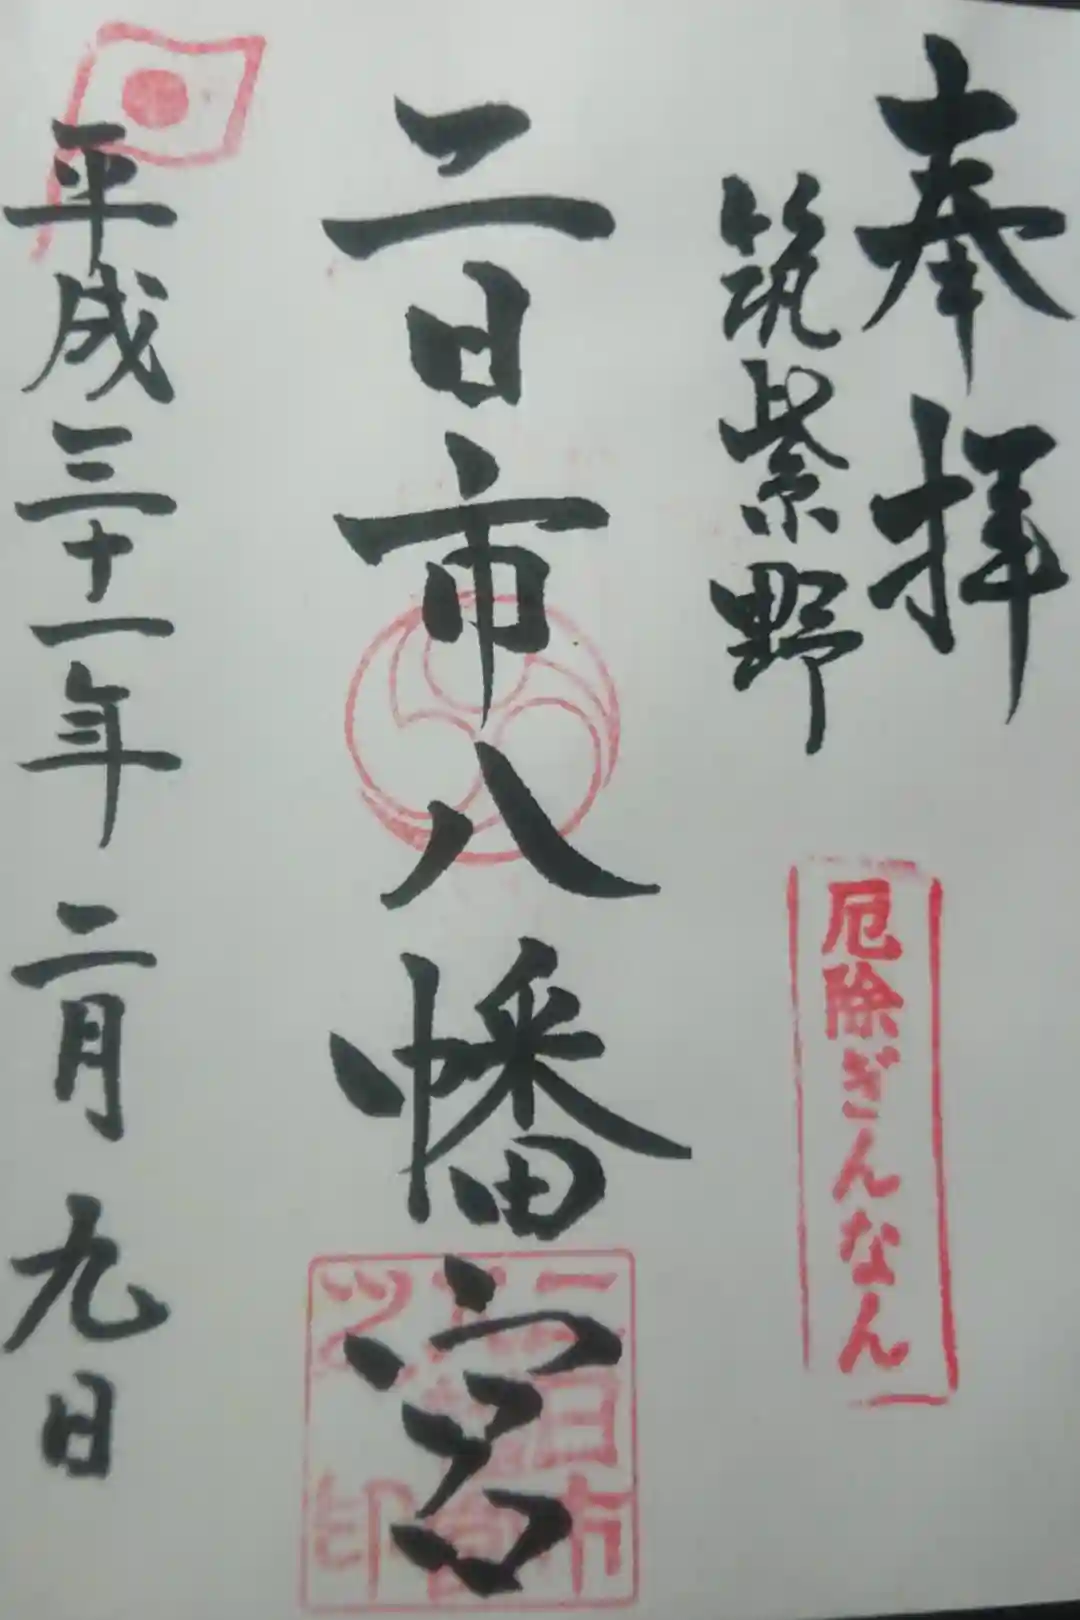 奉拝
筑紫野
厄除ぎんなん
二日市八幡宮
二日市八幡宮之印
平成三十一年二月九日